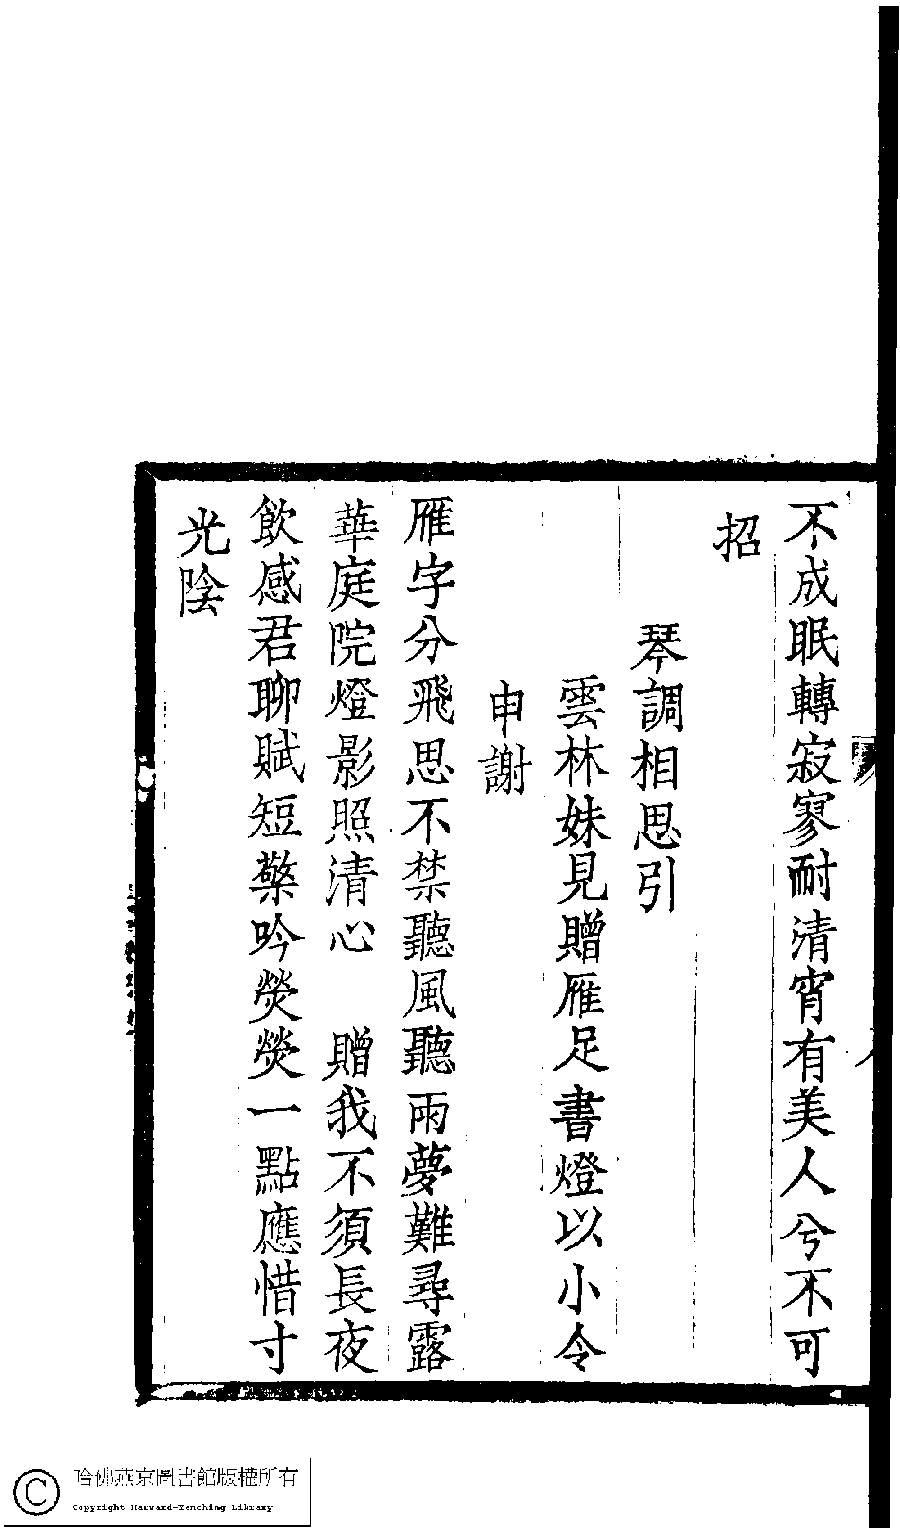 不成眠轉寂寥耐清宵有美人兮不可
招
琴調相思引
雲林妹見贈雁足書燈以小令
申謝
雁字分飛思不禁聽風聽雨夢難尋露
華庭院燈影照清心　贈我不須長夜
飲感君聊賦短檠吟熒熒一點應惜寸
光陰
哈佛燕京圖書館版權所有
Copyright Harvard-Yenching Library